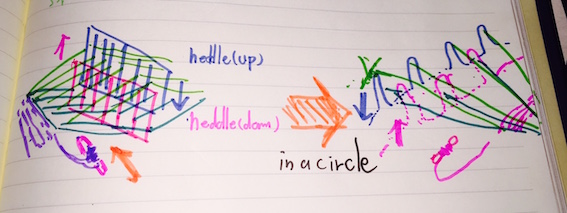 heddle(up)
heddle(down)
in a circle